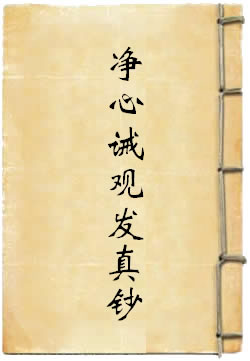 净心诫观发真钞